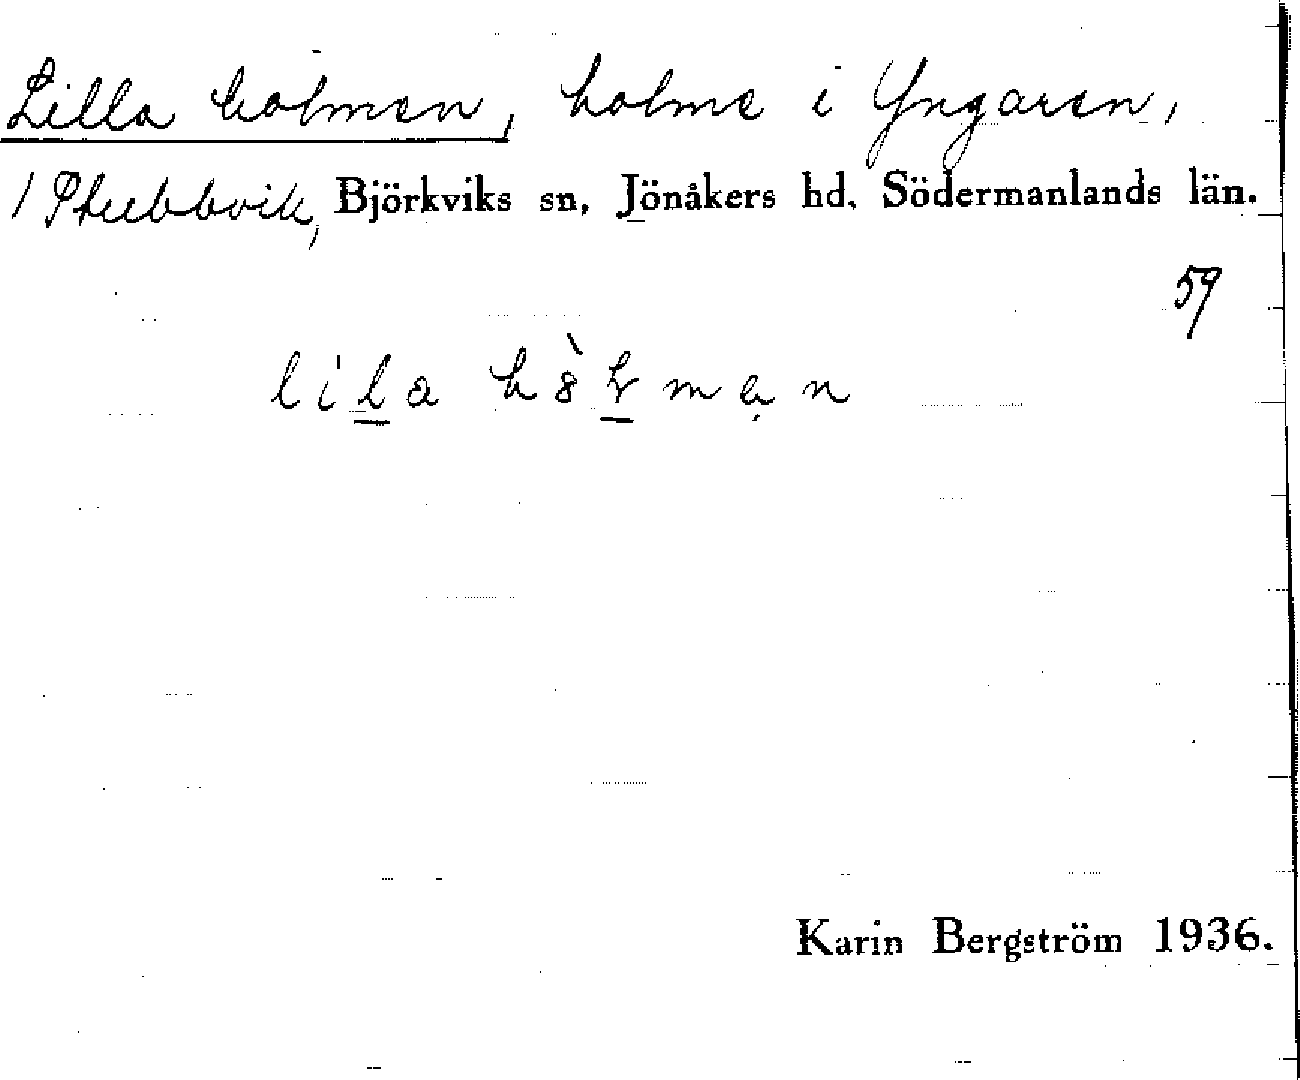 Lilla holmen, holme i Yngaren,
/ Stubbvik, Björkviks sn, Jönåkers hd, Södermanlands län.
59
lila
Karin Bergström 1936.